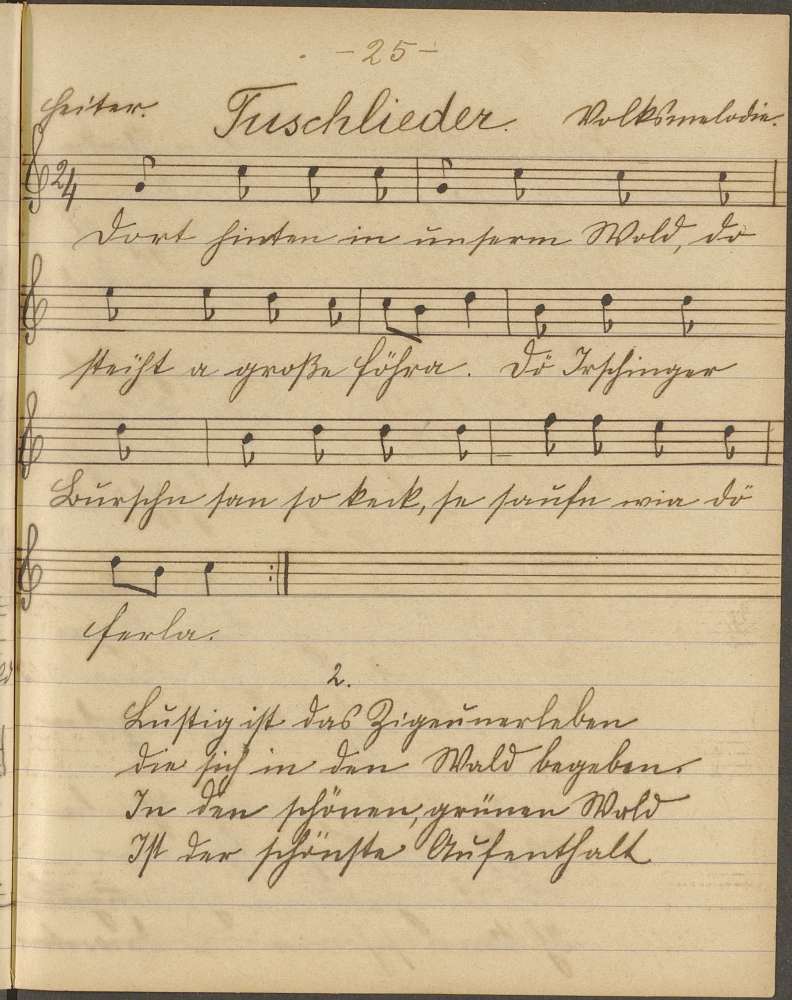 - 25 -
Heiter. Tuschlieder. Volksmelodie.
2/4
Dort hinten in unserm Wold, do
steiht a große Föhra. Dö Irschinger
Burschn san so keck, se saufn wia dö
Ferla.
2.
Lustig ist das Zigeunerleben
die sich in den Wald begeben.
In den schönen, grünen Wold
Ist der schönste Aufenthalt